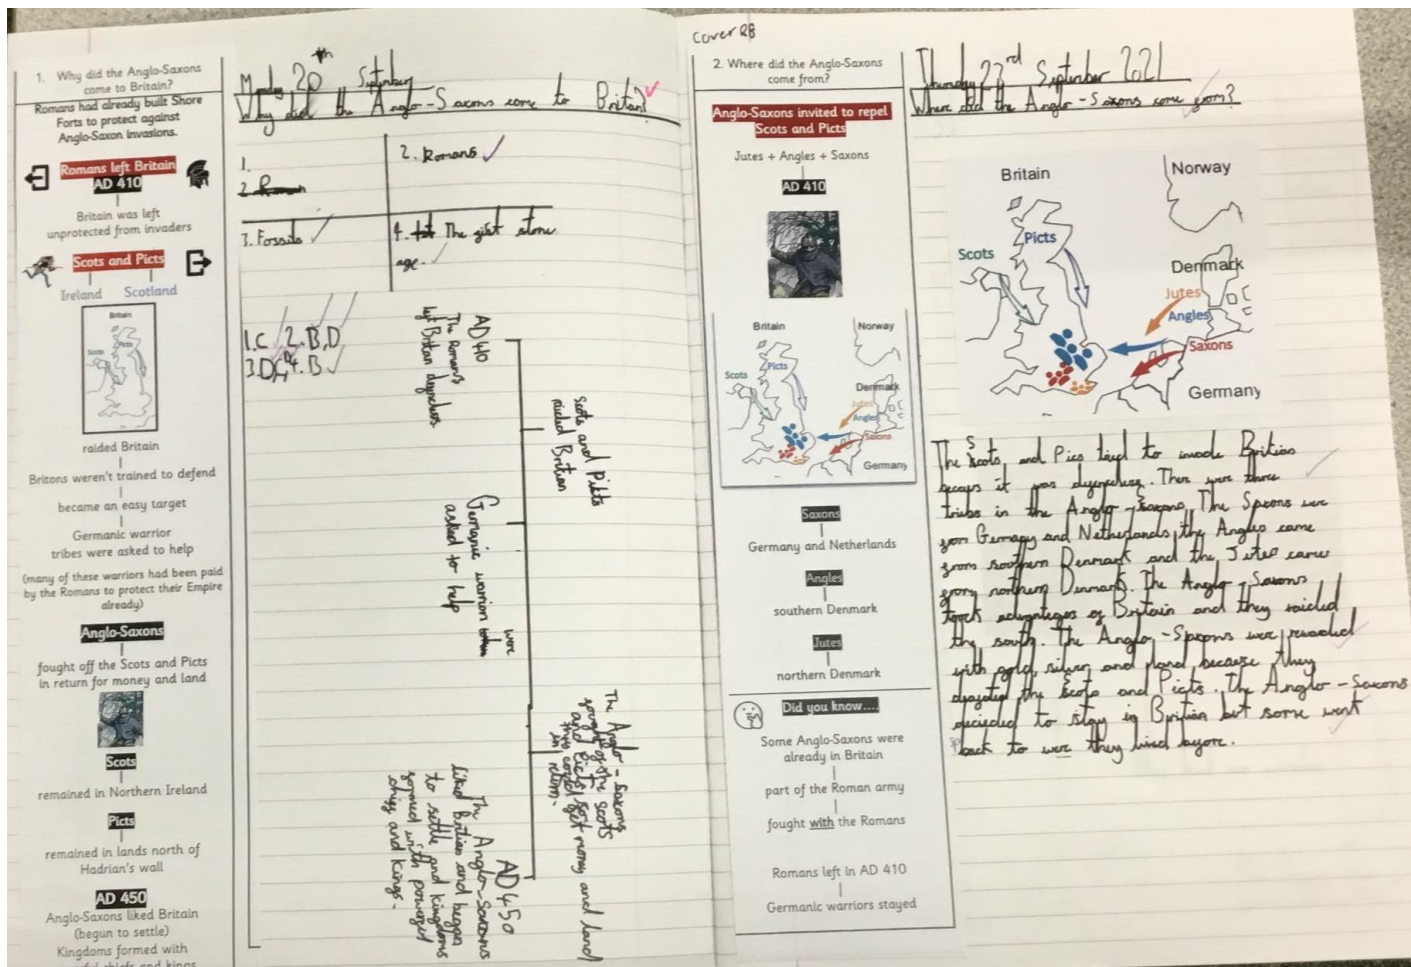 1. Why did the Anglo-Saxons
come to Britain?
Romans had already built Shore
Forts to protect against
Anglo-Saxon invasions.
Romans left Britain
AD 410
Britain was left
unprotected from invaders
Scots and Picts
Ireland Scotland
Britain
Scots
Picts
raided Britain
Britons weren't trained to defend
became an easy target
Germanic warrior
tribes were asked to help
(many of these warriors had been paid
by the Romans to protect their Empire
already)
Anglo-Saxons
fought off the Scots and Picts
in return for money and land
Scots
remained in Northern Ireland
Picts
remained in lands north of
Hadrian's wall
AD 450
Anglo-Saxons liked Britain
(begun to settle)
Kingdoms formed with
Monday 20th September
Why did the Anglo-Saxons come to Britain?
1.
2. Romans
2.
3. Fossils
4. The first stone
age.
1.C 2.B,D
3.D, 4.B
AD 40
The Romans
left Britain defenceless.
Scots and Pikts
raided Britian
Germanic warrion were
asked to help
The Anglo-Saxons
fought of the Scots
and Picts so
they could get money and land
in return.
AD 450
The Anglo-Saxons
liked Britian and began
to settle and kingdoms
formed with powerful
chiefs and kings.
cover RB
2. Where did the Anglo-Saxons
come from?
Anglo-Saxons invited to repel
Scots and Picts
Jutes + Angles + Saxons
AD 410
Britain
Norway
Picts
Scots
Denmark
Jutes
Angles
Saxons
Germany
Saxons
Germany and Netherlands
Angles
southern Denmark
Jutes
northern Denmark
Did you know....
Some Anglo-Saxons were
already in Britain
part of the Roman army
fought with the Romans
Romans left in AD 410
Germanic warriors stayed
Thursday 23rd September 2021
Where did the Anglo-Saxons come from?
Britain
Norway
Picts
Scots
Denmark
Jutes
Angles
Saxons
Germany
The Scots, and Pics tried to invade Britian
it was . There were three
tribes in the Anglo-Saxons. The Saxons were
from Germany and Netherlands, the Angles came
from southern Denmark and the Jutes came
from northern Denmark. The Anglo-Saxons
took advantages of Britain and they raided
the south. The Anglo-Saxons were rewarded
with gold, silver and land because they
the Scots and Picts. The Anglo-Saxons
decieded to stay in Britian but some went
back to were they lived before.